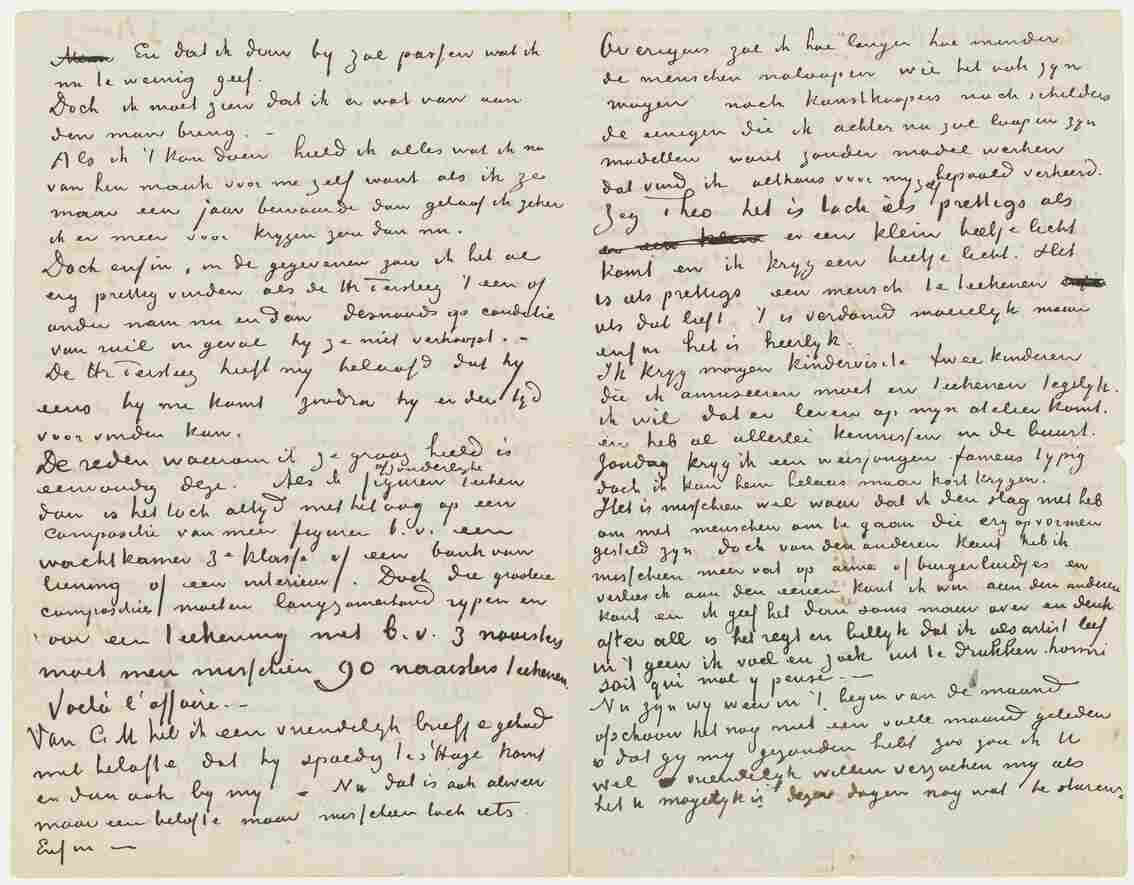 En dat ik dan by zal passen wat ik
nu te weinig geef.
Doch ik moet zien dat ik er wat van aan
den man breng. —
Als ik 't kan doen hield ik alles wat ik nu
van hen maak voor me zelf want als ik ze
maar een jaar bewaarde dan geloof ik zeker
ik er meer voor krygen zou dan nu.
Doch enfin, in de gegevenen zou ik het al
erg prettig vinden als de Hr Tersteeg 't een of
ander nam nu en dan desnoods op conditie
van ruil in geval hy ze niet verkoopt. —
De Hr Tersteeg heeft my beloofd dat hy
eens by me komt zoodra hy er den tyd
voor vinden kan.
De reden waarom ik ze graag hield is
eenvoudig deze. Als ik afzonderlyke figuren teeken
dan is het toch altyd met het oog op een
compositie van meer figuren b.v. een
wachtkamer 3e klasse of een bank van
leening of een interieur. Doch die grootere
composities moeten langzamerhand rypen en
voor een teekening met b.v. 3 naaisters
moet men misschien 90 naaisters teekenen.
Voilà l'affaire. —
Van C.M. heb ik een vriendelyk briefje gehad
met belofte dat hy spoedig te s'Hage komt
en dan ook by my — Nu dat is ook alweer
maar een belofte maar misschien toch iets.
Enfin —
Overigens zal ik hoe langer hoe minder
de menschen naloopen wie het ook zyn
mogen noch kunstkoopers noch schilders
de eenigen die ik achter na zal loopen zyn
modellen want zonder model werken
dat vind ik althans voor my zelf bepaald verkeerd.
Zeg Theo het is toch iets prettigs als
er een klein beetje licht
komt en ik kryg een beetje licht. Het
is iets prettigs een mensch te teekenen
iets dat leeft 't is verdomd moeielyk maar
enfin het is heerlyk.
Ik kryg morgen kindervisite twee kinderen
die ik amuseeren moet en teekenen tegelyk.
ik wil dat er leven op myn atelier komt.
en heb al allerlei kennissen in de buurt.
Zondag kryg ik een weesjongen fameus typig
doch ik kan hem helaas maar kort krygen.
Het is misschien wel waar dat ik den slag niet heb
om met menschen om te gaan die erg op vormen
gesteld zyn doch van den anderen kant heb ik
misschien meer vat op arme of burgerluidjes en
verlies ik aan den eenen kant ik win aan den anderen
kant en ik geef het dan soms maar over en denk
after all is het regt en billyk dat ik als artist leef
in 't geen ik voel en zoek uit te drukken. honni
soit qui mal y pense. —
Nu zyn wy weer in 't begin van de maand
ofschoon het nog niet een volle maand geleden
is dat gy my gezonden hebt zoo zou ik U
wel vriendelyk willen verzoeken my als
het U mogelyk is dezer dagen nog wat te sturen.